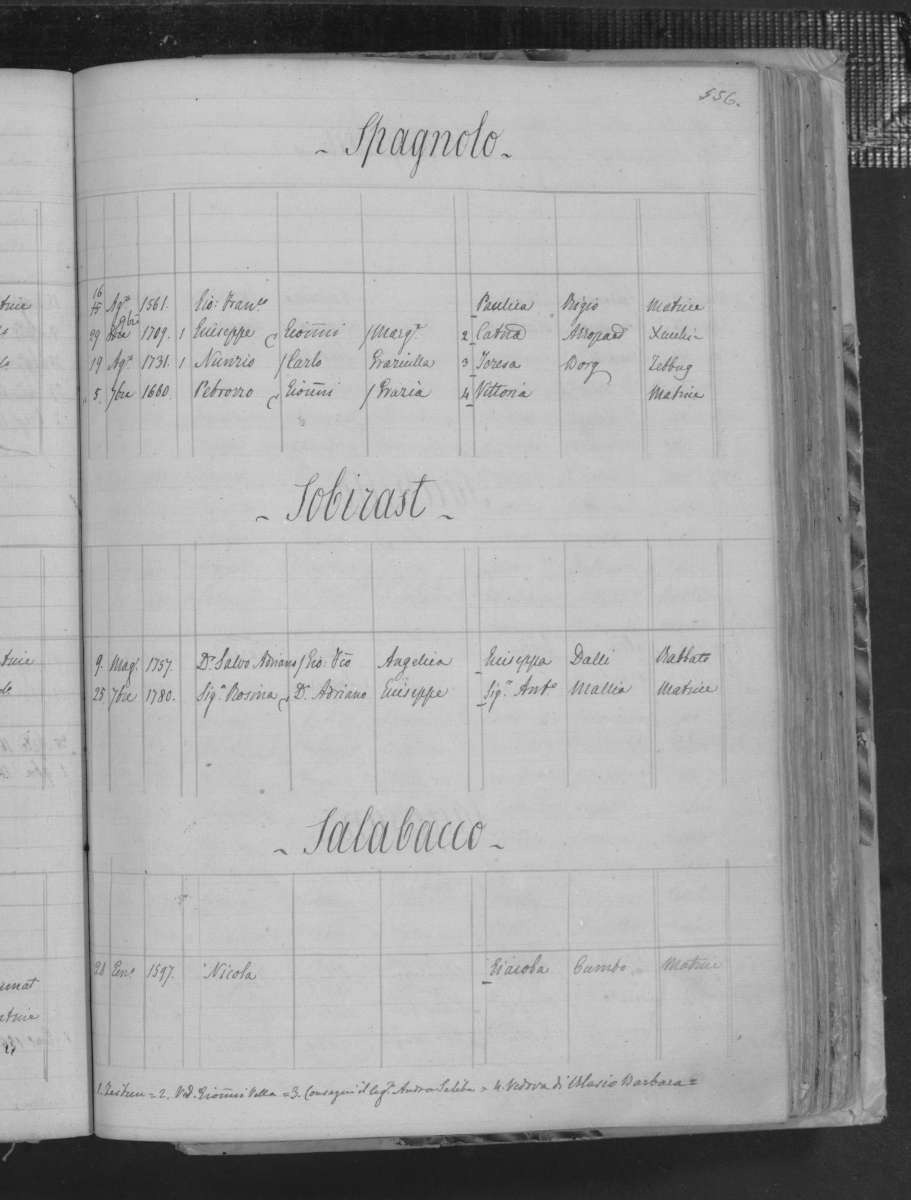 556.
- Spagnolo -
16
15 Agº 1561. Gio: Franco Paulica Bigio Matrice
9bre
29 1709. 1 Giuseppe Gioñni / Margta 2 Catna Xeuchi
19 Agº 1731. 1 Nunzio / Carlo Graziulla 3 Teresa Borg Zebbug
5. 7bre 1660. Petrozzo Gioñni / Grazia 4 Vittoria Matrice
- Sobirast -
9. Magº 1757. Dr Salvo Adriano / Gio: Angelica Giuseppa Dalli Rabbato
25 7bre 1780. Sigra Rosina Dr. Adriano Giuseppe Sigr Antº Mallia Matrice
- Salabacco -
28 Genº 1597. Nicola Giacoba Cumbo Matrice
1. = 2. Ved. Gioñni Vella = 3. Andrea Saliba = 4. Vedova di Blasio Barbara =